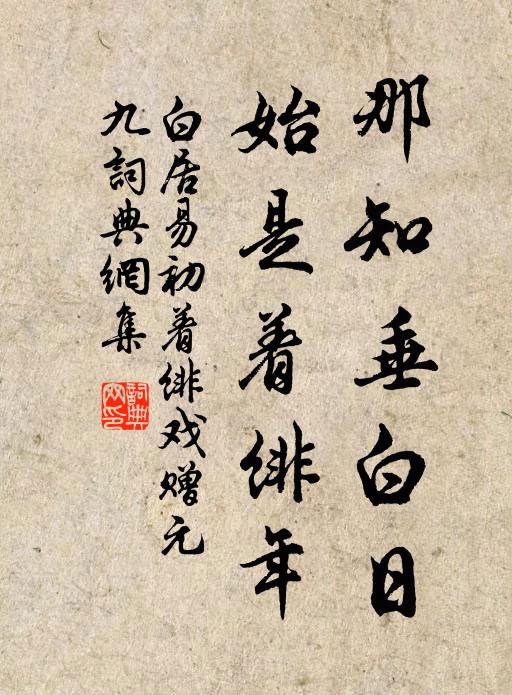 那知垂白日
始是着绯年
白居易初着绯戏赠元
九詞典網集
詞典
网印